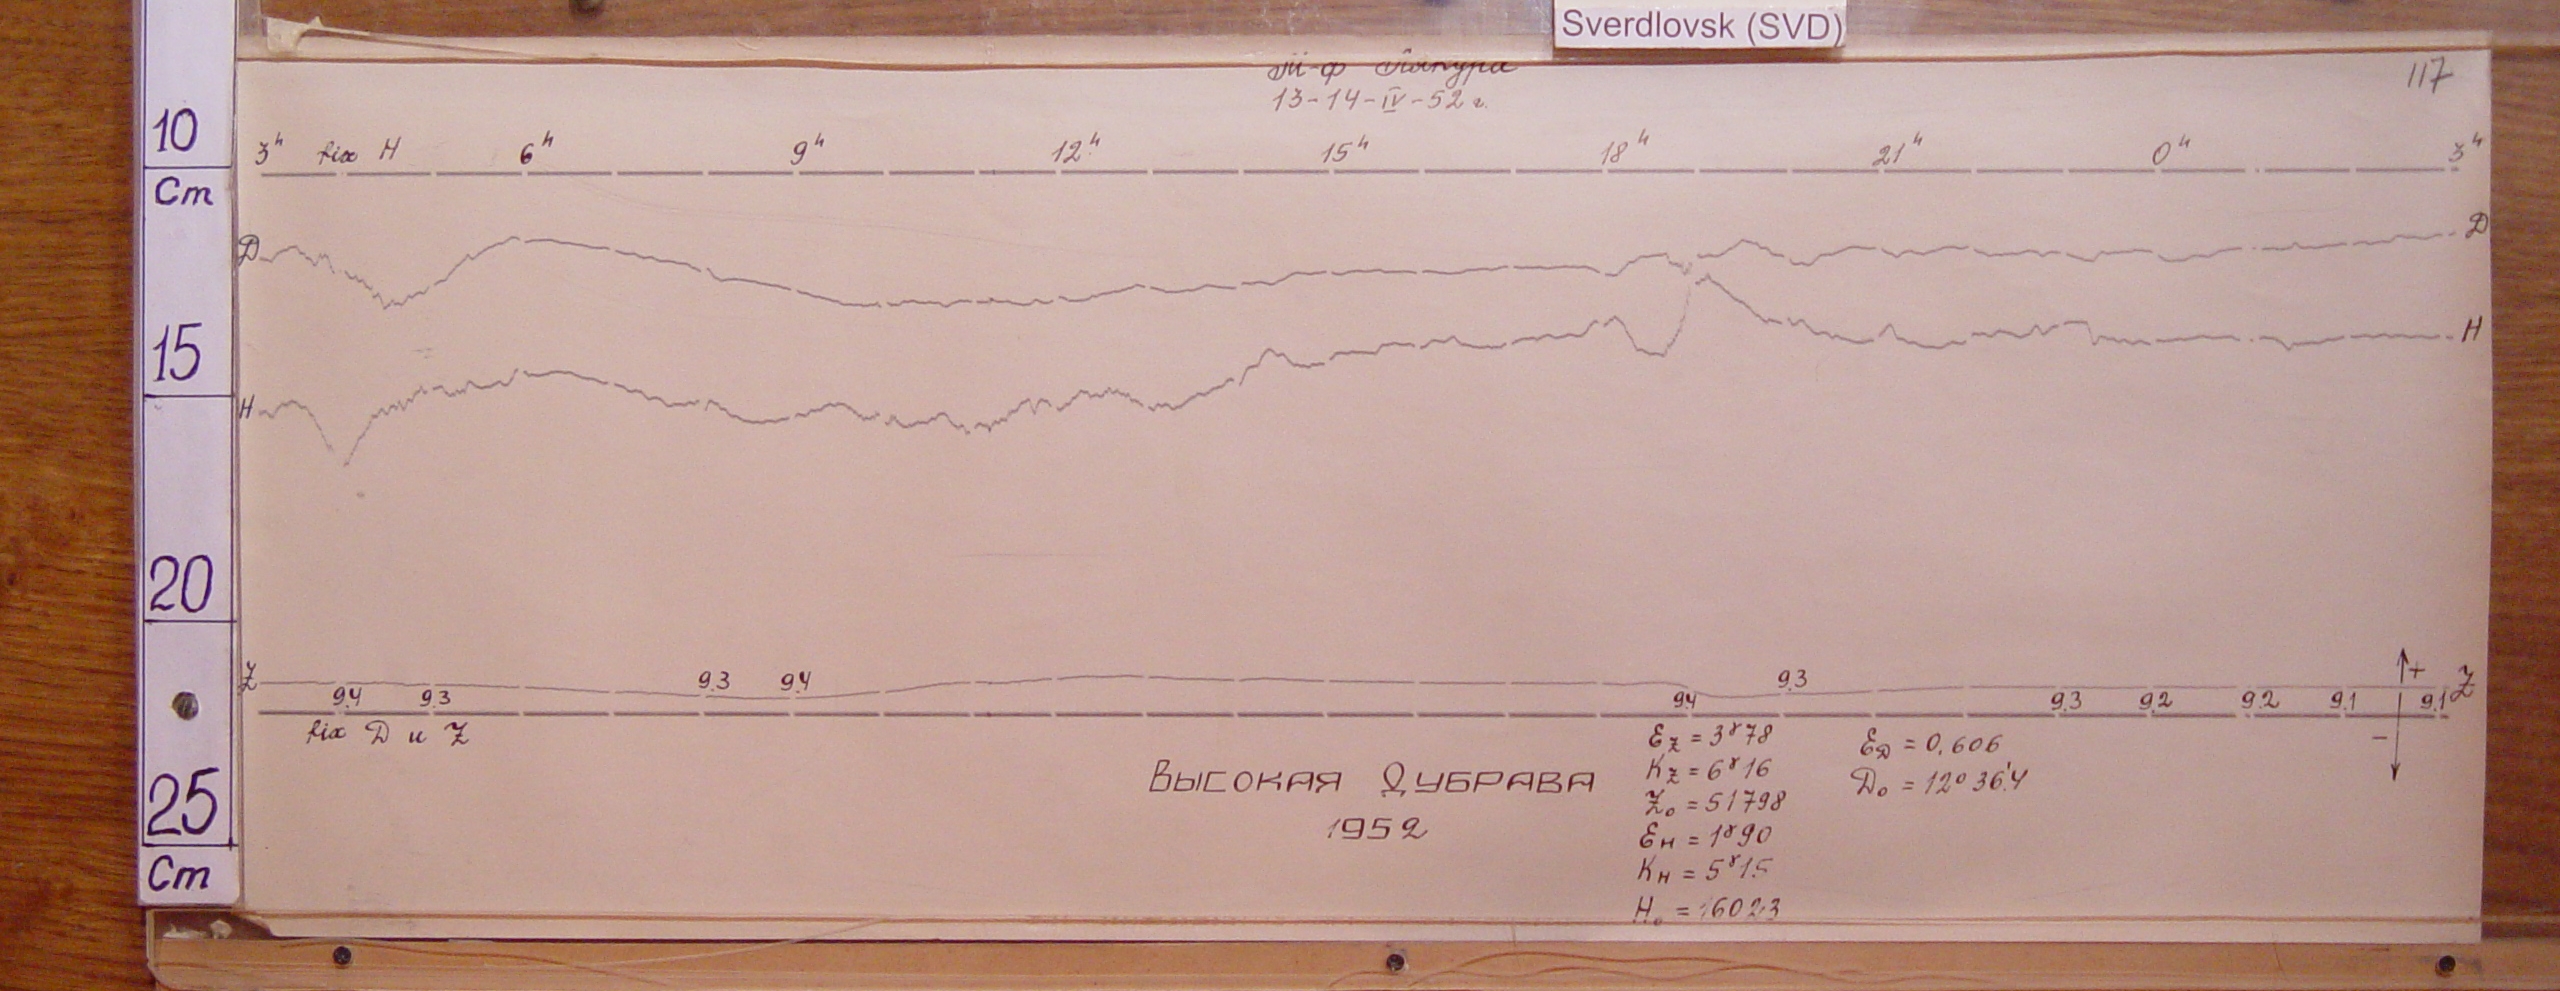 Sverdlovsk (SVD)
117
13-14-IV-52 г.
10
Cm
15
20
25
Cm
3ʰ fix H 6ʰ 9ʰ 12ʰ 15ʰ 18ʰ 21ʰ 0ʰ 3ʰ
Д Д
H H
Z 9.3 9.4 9.3 Z
9.4 9.3 9.4 9.3 9.2 9.2 9.1 9.1
+
−
fix Д и Z
ВЫСОКАЯ ДУБРАВА
1952
Ez = 3ˠ78
Kz = 6ˠ16
Z₀ = 51798
Eн = 1ˠ90
Kн = 5ˠ15
H₀ = 16023
EД = 0,606
Д₀ = 12° 36'.4